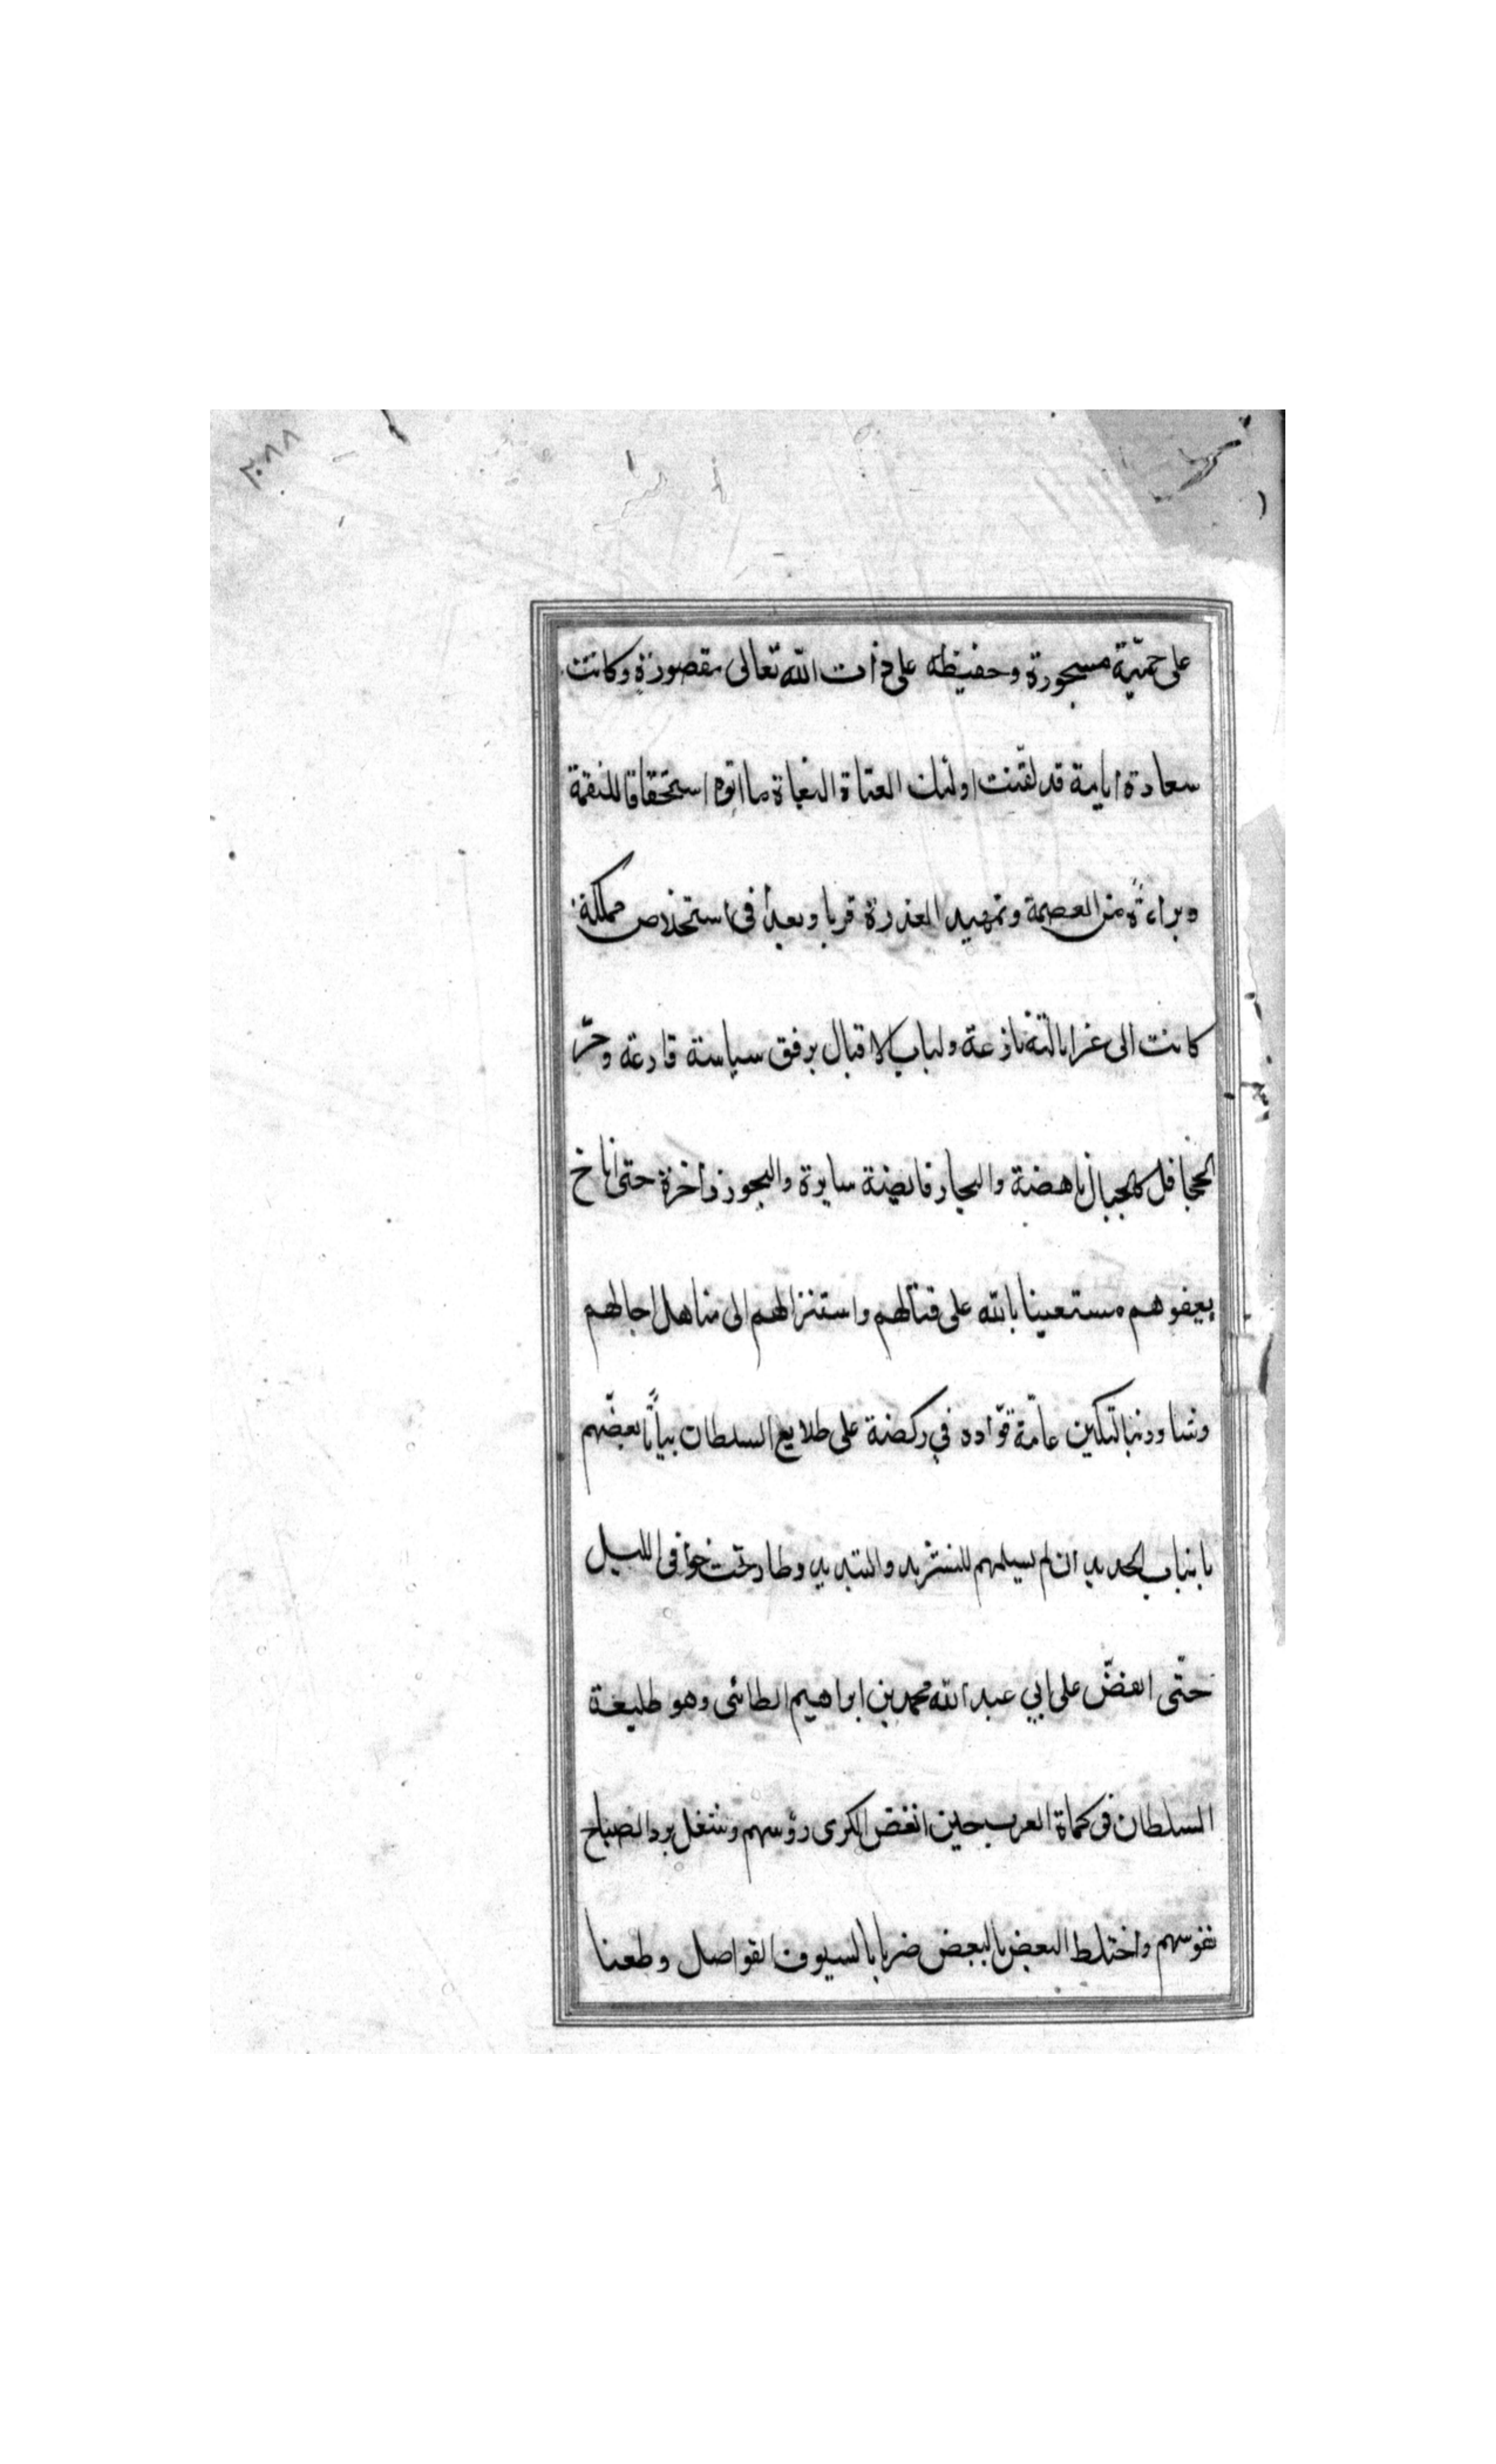 ٢٠٨٨
على حميّة مسجورة وحفيظه على ذات الله تعالى مقصورة وكانت
سعادة ايامه قد لقّنت اولئك العتاة البغاة ما اتوه استحقاقا للنقمة
وبراءةً من العصمة وتمهيد العذرة قربا وبعداً فى استخلاص مملكة
كانت الى غرابالته نازعة ولباب الاقبال برفق سياسته قارعه وجرّ
الجحافل كالجبال ناهضة والبحار فايضة سايرة والبحور زاخرة حتى اناخ
بعفوهم مستعينا بالله على قتالهم واستنزالهم الى مناهل اجالهم
وشاور نيالتكين عامّة قوّاده في ركضة على طلايع السلطان بياتًا بعضّهم
بانياب الحديد ان لم يسلمهم للتشريد والتبديد وطار تحت خوافى الليل
حتّى انقضّ على ابي عبد الله محمد بن ابراهيم الطائى وهو طليعة
السلطان فى كماة العرب حين انغض الكرى رؤسهم وشغل برد الصباح
نفوسهم واختلط البعض بالبعض ضربا بالسيوف القواصل وطعنا